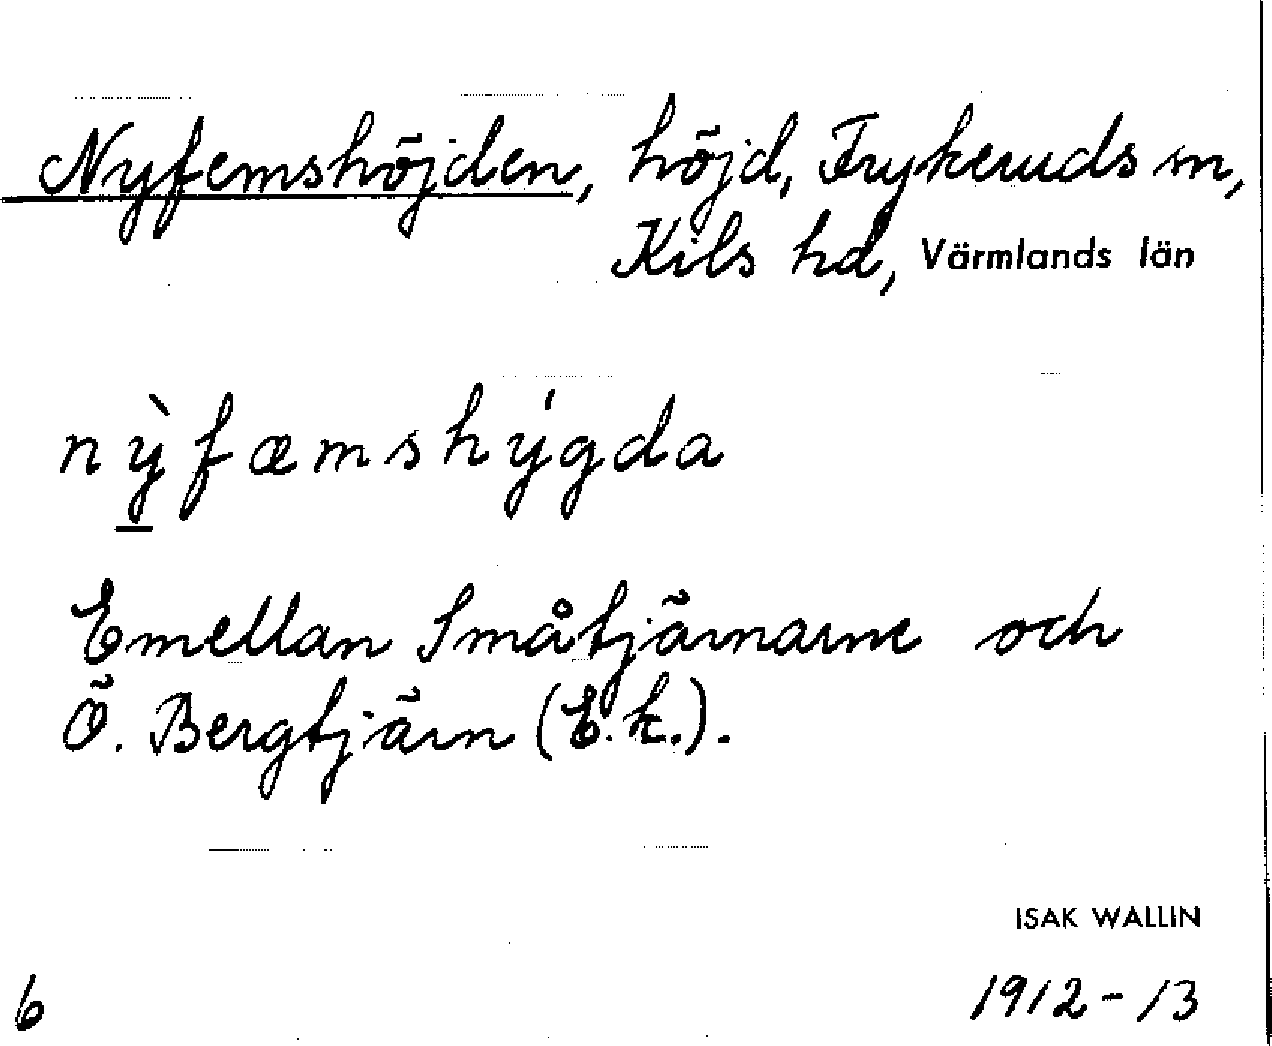 Nyfemshöjden, höjd, Frykeruds sn,
Kils hd, Värmlands län
nỳfæmshýgda
Emellan Småtjärnarne och
Ö. Bergtjärn (E.k.).
ISAK WALLIN
6 1912-13